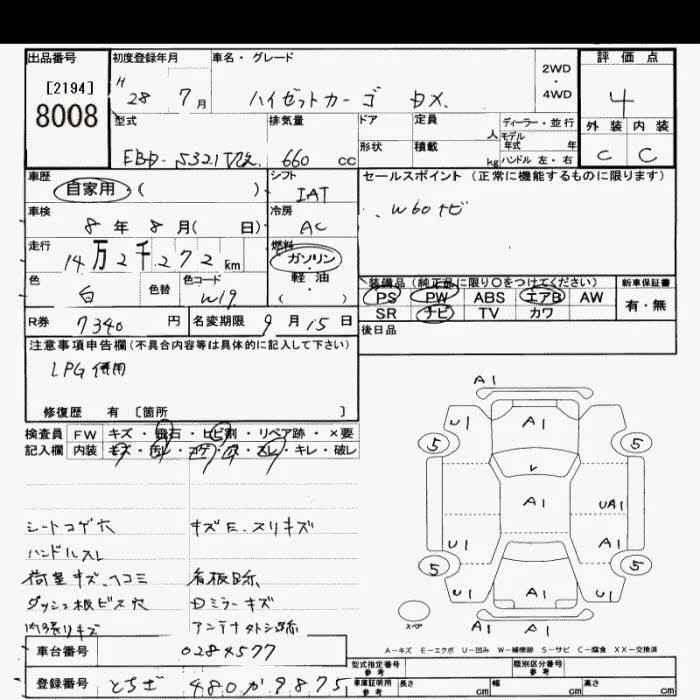 出品番号 初度登録年月 車名・グレード 評価点
[2194] H 28 7月 ハイゼットカーゴ DX. 2WD・4WD 4
8008 型式 排気量 ドア 定員 人 ディーラー・並行 外装 内装
EBD-S321V改. 660 cc 形状 積載 kg モデル年式 年 ハンドル 左・右 C C
車歴 シフト セールスポイント (正常に機能するものに限ります)
自家用・( ) IAT
車検 冷房 . W60ナビ
8年8月( 日) AC
走行 燃料
14万2千272km ガソリン・軽油・( )
色 色替 色コード 装備品(純正品に限り○をつけてください) 新車保証書
白 W19 PS PW ABS エアB AW 有・無
SR ナビ TV カワ
R券 7340円 名変期限 9月15日 後日品
注意事項申告欄(不具合内容等は具体的に記入して下さい)
LPG併用
修復歴 有 [箇所 ]
検査員 FW キズ・飛石・ヒビ割・リペア跡・×要
記入欄 内装 キズ・汚レ・コゲ・穴・スレ・キレ・破レ
シートコゲ穴 キズE.スリキズ
ハンドルスレ
荷室キズ、ヘコミ 看板跡
ダッシュ板ビス穴 Dミラーキズ
内張りキズ アンテナ
A1
U1 A1
5 5
V
A1 UA1
U1 A1
5 5
U1 A1 U1
スペア A1 A1
A-キズ E-エクボ U-凹み W-補修跡 S-サビ C-腐食 XX-交換済
車台番号 0284577 型式指定番号 参考 類別区分番号 参考
登録番号 とちぎ 480か9875 車庫証明用 参考 長さ cm 幅 cm 高さ cm